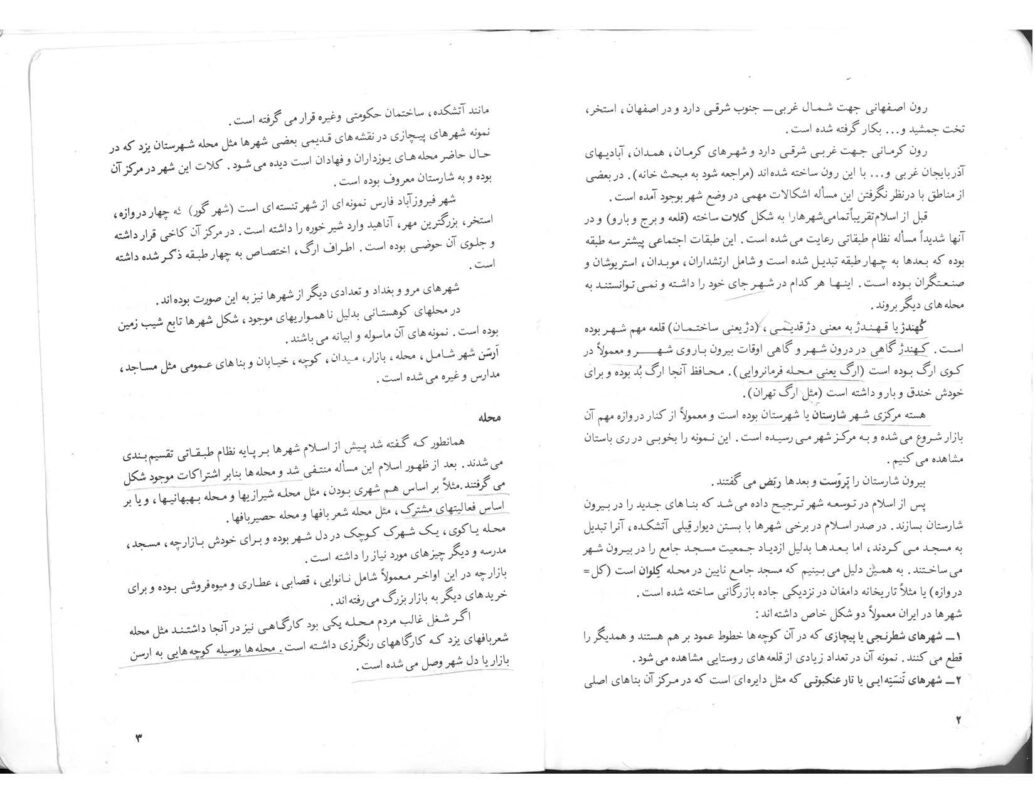 رون اصفهانی جهت شمال غربی ــ جنوب شرقی دارد و در اصفهان، استخر،
تخت جمشید و... بکار گرفته شده است.
رون کرمانی جهت غربی شرقی دارد و شهرهای کرمان، همدان، آبادیهای
آذربایجان غربی و... با این رون ساخته شده‌اند (مراجعه شود به مبحث خانه). در بعضی
از مناطق با درنظر نگرفتن این مسأله اشکالات مهمی در وضع شهر بوجود آمده است.
قبل از اسلام تقریباً تمامی شهرها را به شکل کلات ساخته (قلعه و برج و بارو) و در
آنها شدیداً مسأله نظام طبقاتی رعایت می شده است. این طبقات اجتماعی پیشتر سه طبقه
بوده که بعدها به چهار طبقه تبدیل شده است و شامل ارتشداران، موبدان، استریوشان و
صنعتگران بوده است. اینها هر کدام در شهر جای خود را داشته و نمی توانستند به
محله های دیگر بروند.
کُهندژ یا قهندژ به معنی دژ قدیمی، (دژ یعنی ساختمان) قلعه مهم شهر بوده
است. کهندژ گاهی در درون شهر و گاهی اوقات بیرون باروی شهر و معمولاً در
کوی ارگ بوده است (ارگ یعنی محله فرمانروایی). محافظ آنجا ارگ بُد بوده و برای
خودش خندق و بارو داشته است (مثل ارگ تهران).
هسته مرکزی شهر شارستان یا شهرستان بوده است و معمولاً از کنار دروازه مهم آن
بازار شروع می شده و به مرکز شهر می رسیده است. این نمونه را بخوبی در ری باستان
مشاهده می کنیم.
بیرون شارستان را پَروَست و بعدها ربَض می گفتند.
پس از اسلام در توسعه شهر ترجیح داده می شد که بناهای جدید را در بیرون
شارستان بسازند. در صدر اسلام در برخی شهرها با بستن دیوار قِبلی آتشکده، آنرا تبدیل
به مسجد می کردند، اما بعدها بدلیل ازدیاد جمعیت مسجد جامع را در بیرون شهر
می ساختند. به همین دلیل می بینیم که مسجد جامع نایین در محله کِلوان است (کل=
دروازه) یا مثلاً تاریخانه دامغان در نزدیکی جاده بازرگانی ساخته شده است.
شهرها در ایران معمولاً دو شکل خاص داشته‌اند:
۱ــ شهرهای شطرنجی یا پیچازی که در آن کوچه‌ها خطوط عمود بر هم هستند و همدیگر را
قطع می کنند. نمونه آن در تعداد زیادی از قلعه های روستایی مشاهده می شود.
۲ــ شهرهای تَنَسته‌ایی یا تار عنکبوتی که مثل دایره‌ای است که در مرکز آن بناهای اصلی
۲
مانند آتشکده، ساختمان حکومتی وغیره قرار می گرفته است.
نمونه شهرهای پیچازی در نقشه های قدیمی بعضی شهرها مثل محله شهرستان یزد که در
حال حاضر محله های یوزداران و فهادان است دیده می شود. کلات این شهر در مرکز آن
بوده و به شارستان معروف بوده است.
شهر فیروزآباد فارس نمونه ای از شهر تنسته ای است (شهر گور) که چهار دروازه،
استخر، بزرگترین مهر، آناهید وارد شیر خوره را داشته است. در مرکز آن کاخی قرار داشته
و جلوی آن حوضی بوده است. اطراف ارگ، اختصاص به چهار طبقه ذکر شده داشته
است.
شهرهای مرو و بغداد و تعدادی دیگر از شهرها نیز به این صورت بوده‌اند.
در محلهای کوهستانی بدلیل ناهمواریهای موجود، شکل شهرها تابع شیب زمین
بوده است. نمونه های آن ماسوله و ابیانه می باشند.
اَرسَن شهر شامل، محله، بازار، میدان، کوچه، خیابان و بناهای عمومی مثل مساجد،
مدارس و غیره می شده است.
محله
همانطور که گفته شد پیش از اسلام شهرها بر پایه نظام طبقاتی تقسیم بندی
می شدند. بعد از ظهور اسلام این مسأله منتفی شد و محله‌ها بنابر اشتراکات موجود شکل
می گرفتند. مثلاً بر اساس هم شهری بودن، مثل محله شیرازیها و محله بهبهانیها، و یا بر
اساس فعالیتهای مشترک، مثل محله شعر بافها و محله حصیربافها.
محله یا کوی، یک شهرک کوچک در دل شهر بوده و برای خودش بازارچه، مسجد،
مدرسه و دیگر چیزهای مورد نیاز را داشته است.
بازارچه در این اواخر معمولاً شامل نانوایی، قصابی، عطاری و میوه فروشی بوده و برای
خریدهای دیگر به بازار بزرگ می رفته اند.
اگر شغل غالب مردم محله یکی بود کارگاهی نیز در آنجا داشتند مثل محله
شعربافهای یزد که کارگاههای رنگرزی داشته است. محله‌ها بوسیله کوچه هایی به ارسن
بازار یا دل شهر وصل می شده است.
۳